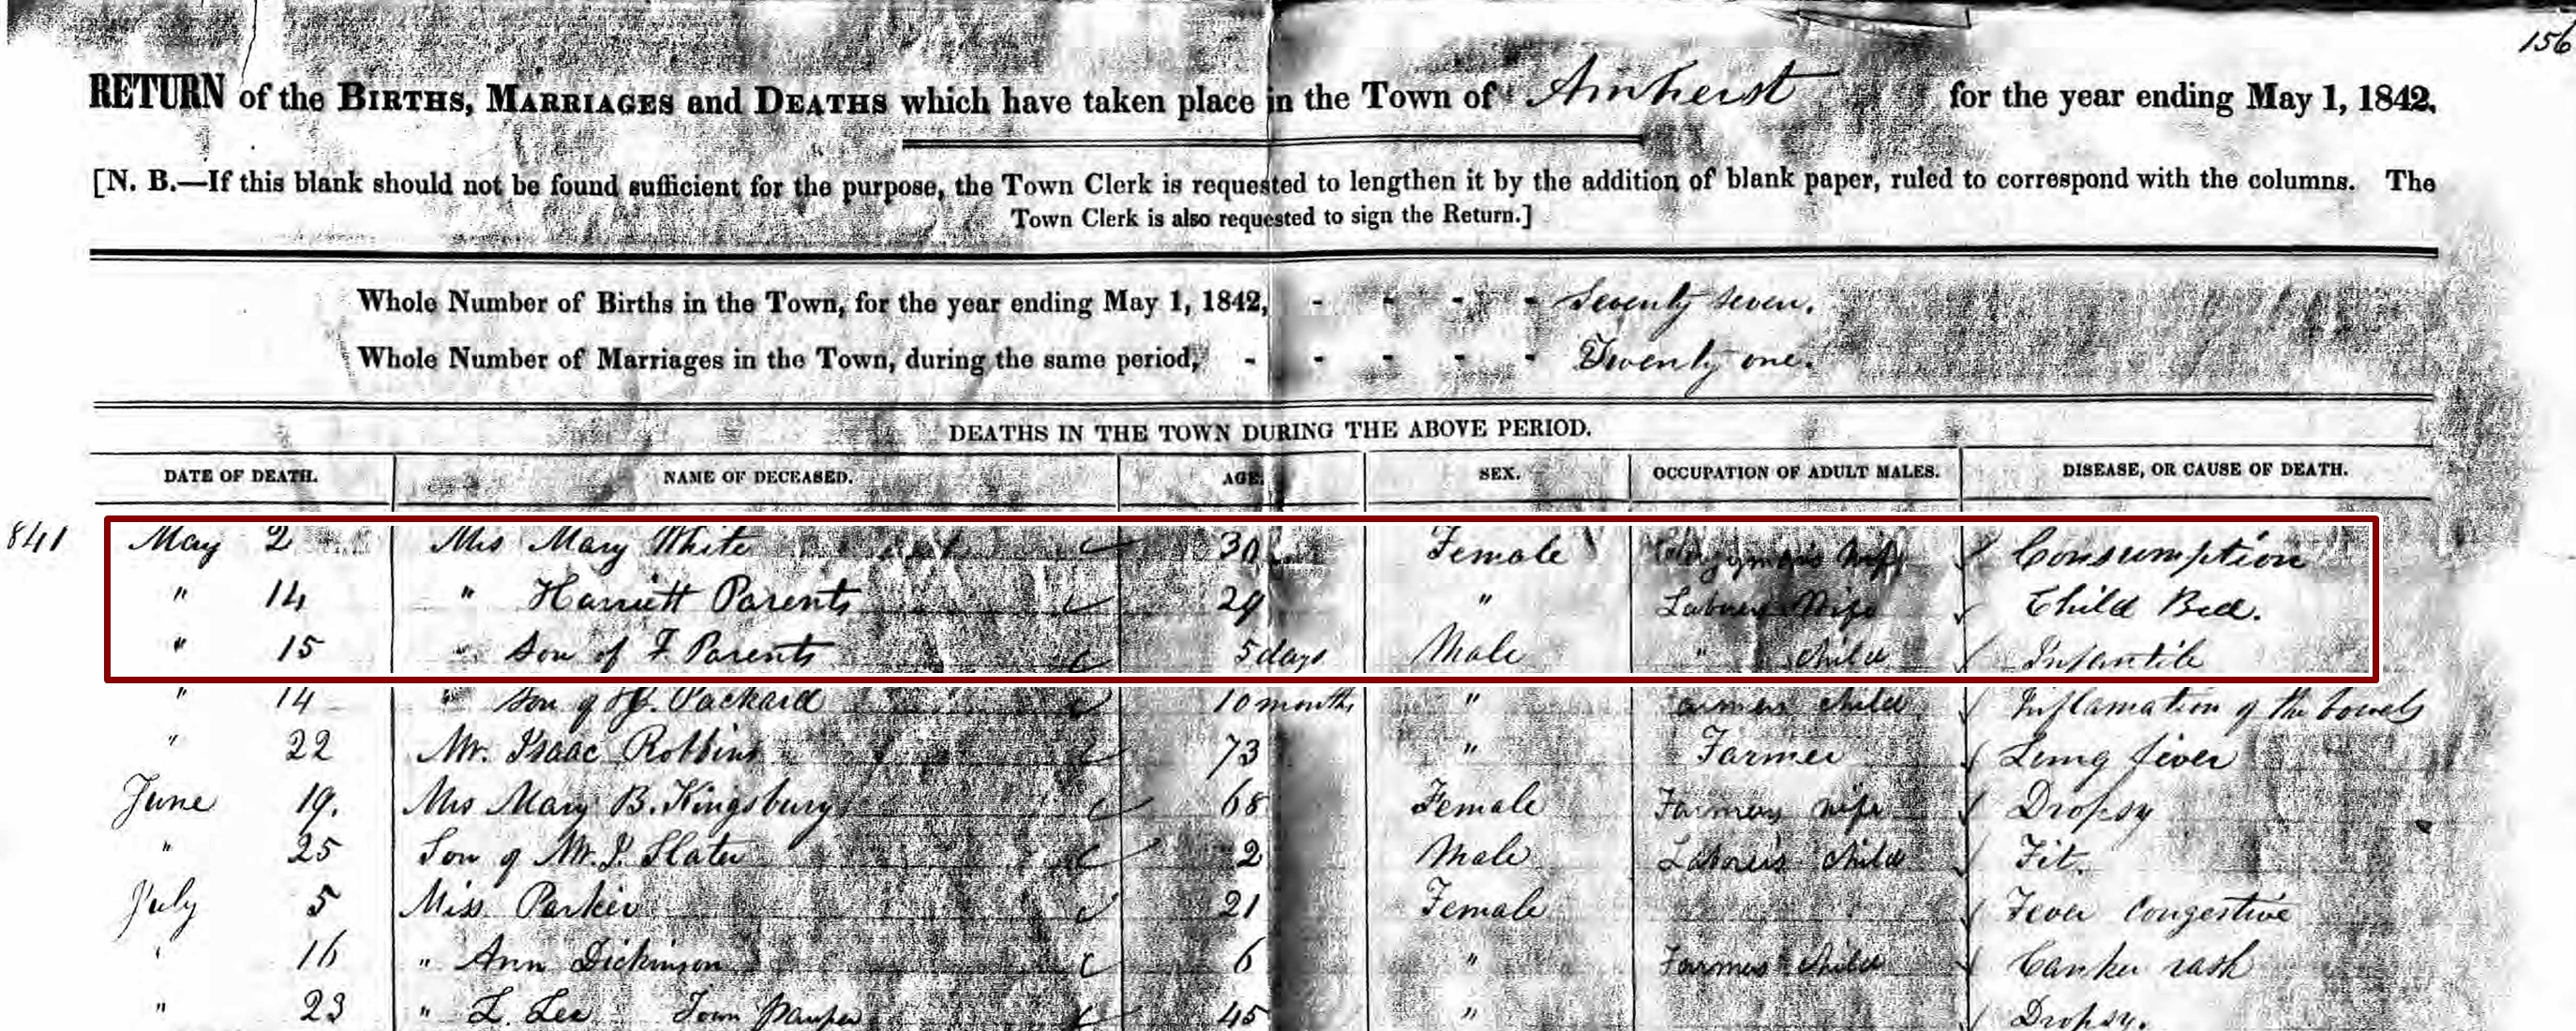 156
RETURN of the BIRTHS, MARRIAGES and DEATHS which have taken place in the Town of Amherst for the year ending May 1, 1842.
[N. B.—If this blank should not be found sufficient for the purpose, the Town Clerk is requested to lengthen it by the addition of blank paper, ruled to correspond with the columns. The
Town Clerk is also requested to sign the Return.]
Whole Number of Births in the Town, for the year ending May 1, 1842, - - - - Seventy seven.
Whole Number of Marriages in the Town, during the same period, - - - - - Twenty one.
DEATHS IN THE TOWN DURING THE ABOVE PERIOD.
DATE OF DEATH. NAME OF DECEASED. AGE. SEX. OCCUPATION OF ADULT MALES. DISEASE, OR CAUSE OF DEATH.
841 May 2 Mrs Mary White 30 Female Clergyman's Wife Consumption
" 14 " Harriett Parents 29 " Laborers Wife Child Bed.
" 15 Son of F. Parents 5 days Male " child Infantile
" 14 " Son of Packard 10 months " armers child Inflamation of the bowels
" 22 Mr. Isaac Robbins 73 " Farmer Lung fever
June 19. Mrs Mary B. Kingsbury 68 Female Farmers wife Dropsy
" 25 Son of Mr. J. Slater 2 Male Laborers child Fit.
July 5 Miss Parker 21 Female Fever Congestive
" 16 " Ann Dickinson 6 " Farmers child Canker rash
" 23 " L. Lee Town Pauper 45 " Dropsy.